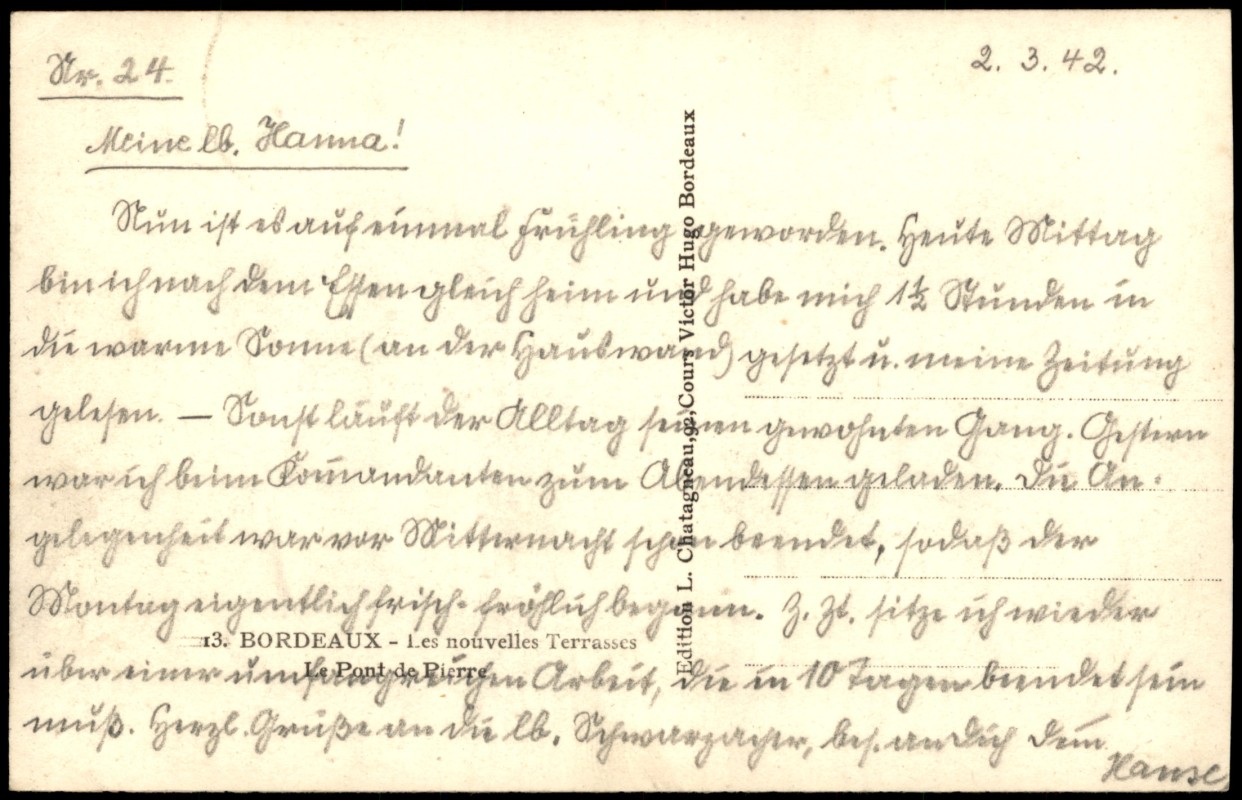 Nr. 24.
2. 3. 42.
Meine lb. Hanna!
Nun ist es auf einmal Frühling geworden. Heute Mittag
bin ich nach dem Essen gleich heim und habe mich 1½ Stunden in
die warme Sonne (an der Hauswand) gesetzt u. meine Zeitung
gelesen. — Sonst läuft der Alltag seinen gewohnten Gang. Gestern
war ich beim Komandanten zum Abendessen geladen. Die An-
gelegenheit war vor Mitternacht schon beendet, sodaß der
Montag eigentlich frisch-fröhlich begann. Z. Zt. sitze ich wieder
über einer umfangreichen Arbeit, die in 10 Tagen beendet sein
muß. Herzl. Grüße an die lb. Schwarzacher, bes. an Dich Dein
Hanse
13. BORDEAUX - Les nouvelles Terrasses
Le Pont de Pierre
Edition L. Chatagneau, 92, Cours Victor Hugo Bordeaux